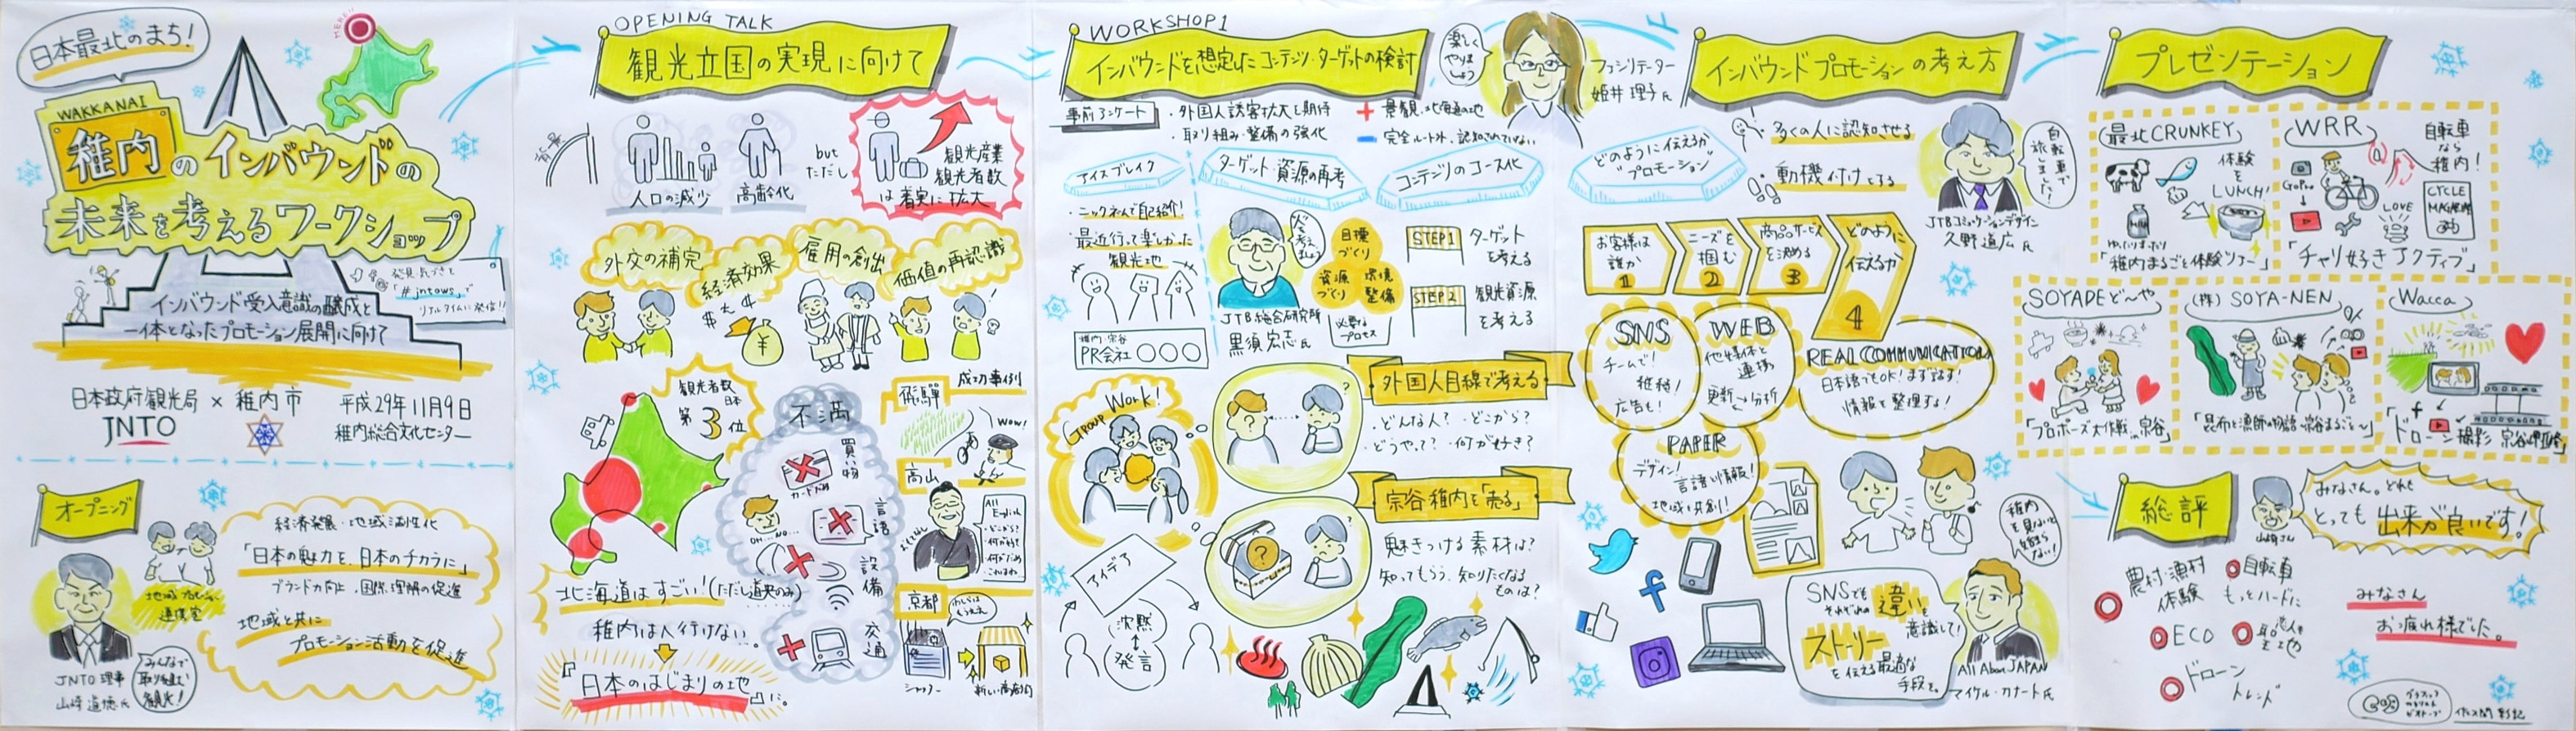 日本最北のまち!
HERE!!
WAKKANAI
稚内のインバウンドの
未来を考えるワークショップ
発見・気づきを
「#jntows」で
リアルタイムに発信!!
インバウンド受入意識の醸成と
一体となったプロモーション展開に向けて
日本政府観光局 × 稚内市
JNTO
平成29年11月9日
稚内総合文化センター
オープニング
地域プロモーション
連携室
JNTO 理事
山崎 道徳氏
みんなで
取り組む
観光!
経済発展・地域活性化
「日本の魅力を、日本のチカラに」
ブランド力向上・国際理解の促進
地域と共に
プロモーション活動を促進
OPENING TALK
観光立国の実現に向けて
背景
人口の減少
高齢化
but
ただし
観光産業
観光者数
は着実に拡大
外交の補完
経済効果
雇用の創出
価値の再認識
観光者数
日本
第3位
北海道はすごい!(ただし道央のみ)
稚内は人行けない。
『日本のはじまりの地』に。
不満
買い物
カードだめ
言語
OH...NO...
設備
交通
成功事例
飛騨
WOW!
高山
All
English
・どこから?
京都
シャッター
新しい商店街
WORKSHOP1
インバウンドを想定したコンテンツ・ターゲットの検討
楽しく
やりま
しょう
ファシリテーター
姫井 理子氏
事前アンケート
・外国人誘客拡大を期待
・取り組み・整備の強化
+ 景観、北海道の地
− 完全ルート外、認知されていない
アイスブレイク
・ニックネームで自己紹介!
・最近行って楽しかった
観光地
稚内・宗谷
PR会社○○○
ターゲット・資源の再考
JTB総合研究所
黒須 宏志氏
目標
づくり
資源
づくり
環境
整備
必要な
プロセス
コンテンツのコース化
STEP1
ターゲット
を考える
STEP2
観光資源
を考える
GROUP Work!
アイデア
沈黙
発言
外国人目線で考える
・どんな人?・どこから?
・どうやって?・何が好き?
宗谷・稚内を「売る」
魅きつける素材は?
知ってもらう、知りたくなる
ものは?
インバウンドプロモーションの考え方
どのように伝えるか
プロモーション
多くの人に認知させる
動機付けをする
自転車で
旅しました!
JTBコミュニケーションデザイン
久野 道広氏
お客様は
誰か
1
ニーズを
掴む
2
商品・サービス
を決める
3
どのように
伝えるか
4
SNS
チームで!
推移!
広告も!
WEB
他媒体と
連携
更新→分析
REAL COMMUNICATION
日本語でもOK!まず話す!
情報を整理する!
PAPER
デザイン!
言語い情報!
地域を分割!
SNSでも
それぞれの違いを
意識して!
ストーリー
を伝える最適な
手段を。
稚内
を見ないと
始まら
ない!
All About JAPAN
マイケル・カナート氏
プレゼンテーション
最北CRUNKEY
体験
を
LUNCH!
ゆったりまったり
「稚内まるごと体験ツアー」
WRR
自転車
なら
稚内!
GoPro
LOVE
CYCLE
MAGAZINE
「チャリ好きアクティブ」
SOYADEど〜や
「プロポーズ大作戦in宗谷」
(株) SOYA-NEN
「昆布と漁師の物語〜宗谷まるごと〜」
Wacca
総評
山崎さん
みなさん。どれも
とっても出来が良いです!
農村・漁村
体験
自転車
もっとハードに
ECO
ドローン
トレンド
みなさん
お疲れ様でした。